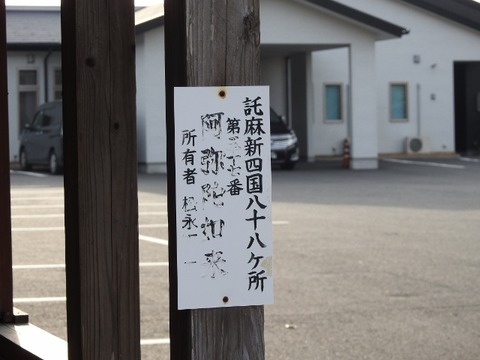 託麻新四国八十八ヶ所
第 番
阿弥陀如来
所有者 松永